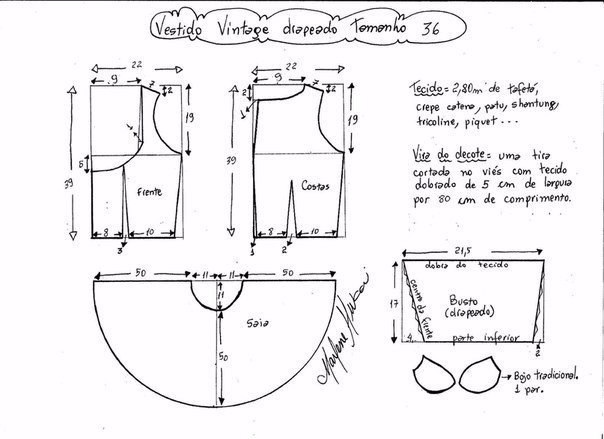 Vestido Vintage drapeado Tamanho 36
22
9
7
2
19
5
39
Frente
8
10
3
22
9
7
2
19
39
Costas
8
10
1
2
Tecido = 2,80m de tafetá,
crepe catena, patu, shantung,
tricoline, piquet ...
Vira do decote = uma tira
cortada no viés com tecido
dobrado de 5 cm de largura
por 80 cm de comprimento.
50
11
11
50
11
Saia
50
Marlene Mukai
21,5
dobra do tecido
17
centro da frente
Busto
(drapeado)
4
parte inferior
2
Bojo tradicional.
1 par.